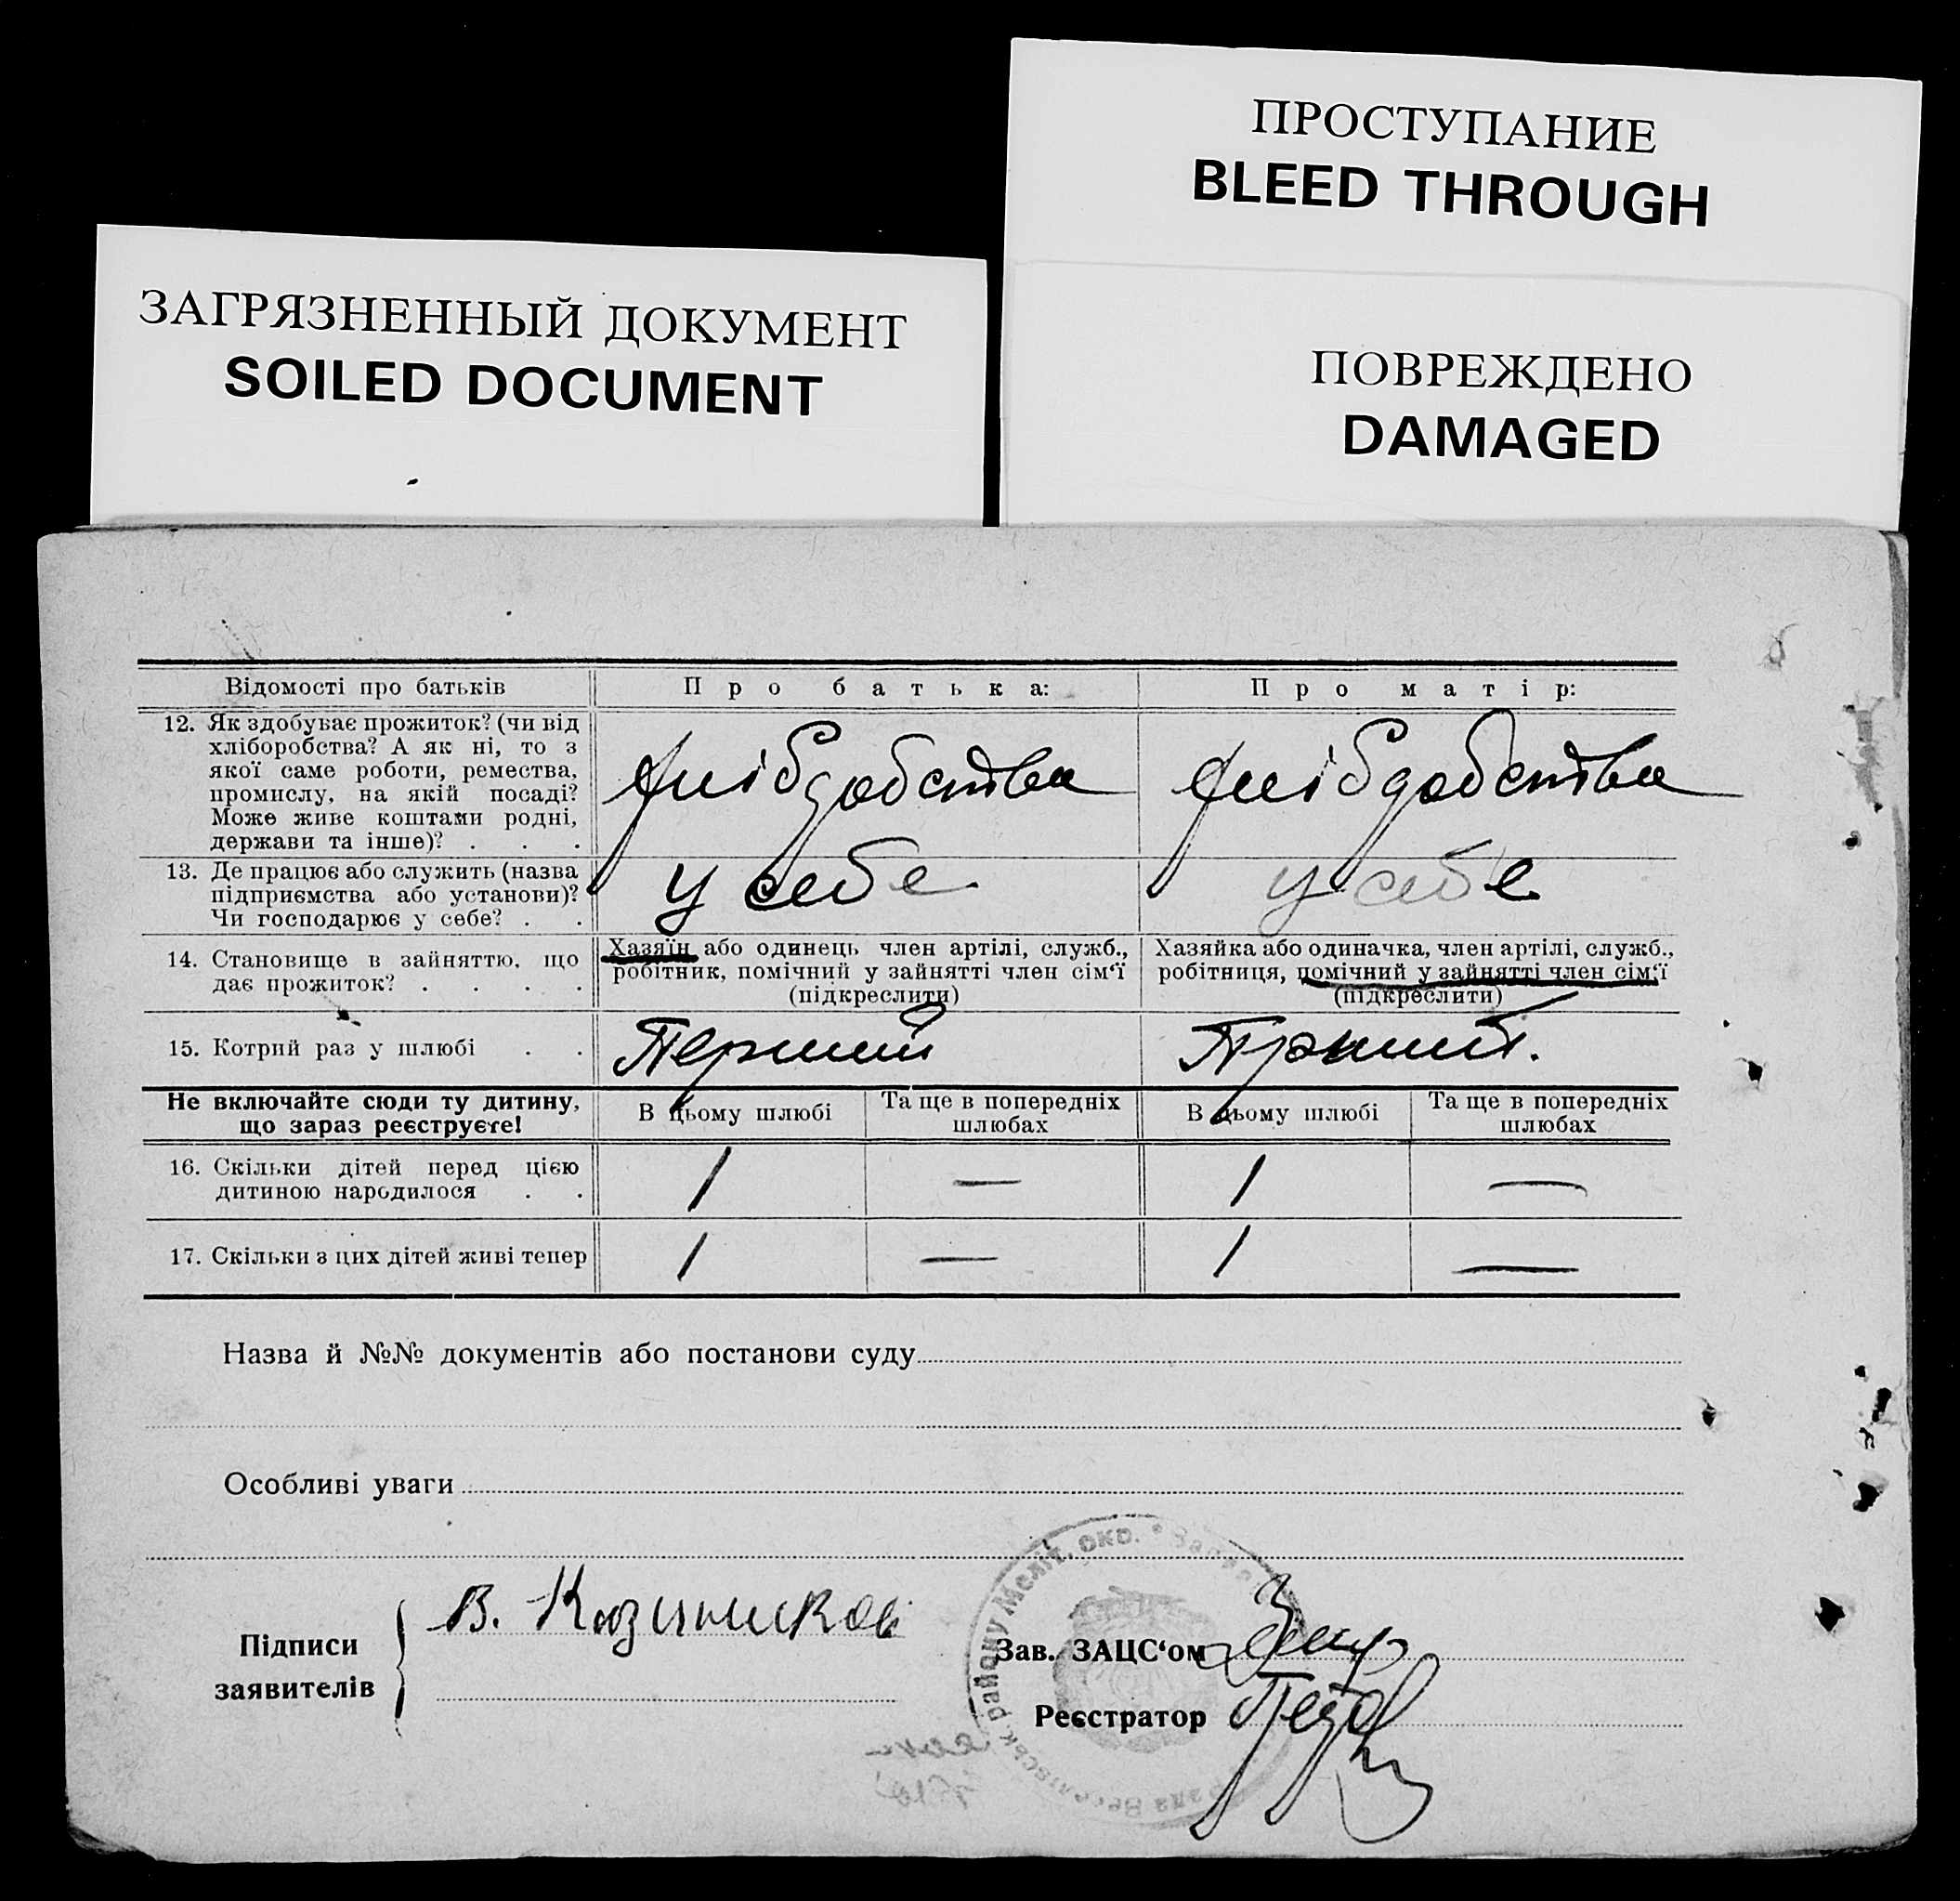 ПРОСТУПАНИЕ
BLEED THROUGH
ЗАГРЯЗНЕННЫЙ ДОКУМЕНТ
SOILED DOCUMENT
ПОВРЕЖДЕНО
DAMAGED
Відомості про батьків
Про батька:
Про матір:
12. Як здобуває прожиток? (чи від
хліборобства? А як ні, то з
якої саме роботи, ремества,
промислу, на якій посаді?
Може живе коштами родні,
держави та інше)? . . .
13. Де працює або служить (назва
підприємства або установи)?
Чи господарює у себе? . .
у себе
у себе
14. Становище в зайняттю, що
дає прожиток? . . . .
Хазяїн або одинець член артілі, служб.,
робітник, помічний у зайнятті член сім‘ї
(підкреслити)
Хазяйка або одиначка, член артілі, служб.,
робітниця, помічний у зайнятті член сім‘ї
(підкреслити)
15. Котрий раз у шлюбі . .
Перший
Не включайте сюди ту дитину,
що зараз реєструєте!
В цьому шлюбі
Та ще в попередніх
шлюбах
В цьому шлюбі
Та ще в попередніх
шлюбах
16. Скільки дітей перед цією
дитиною народилося . .
1 — 1 —
17. Скільки з цих дітей живі тепер
1 — 1 —
Назва й №№ документів або постанови суду
Особливі уваги
Підписи
заявителів
В.
Зав. ЗАЦС‘ом
Реєстратор
району Меліт. окр.